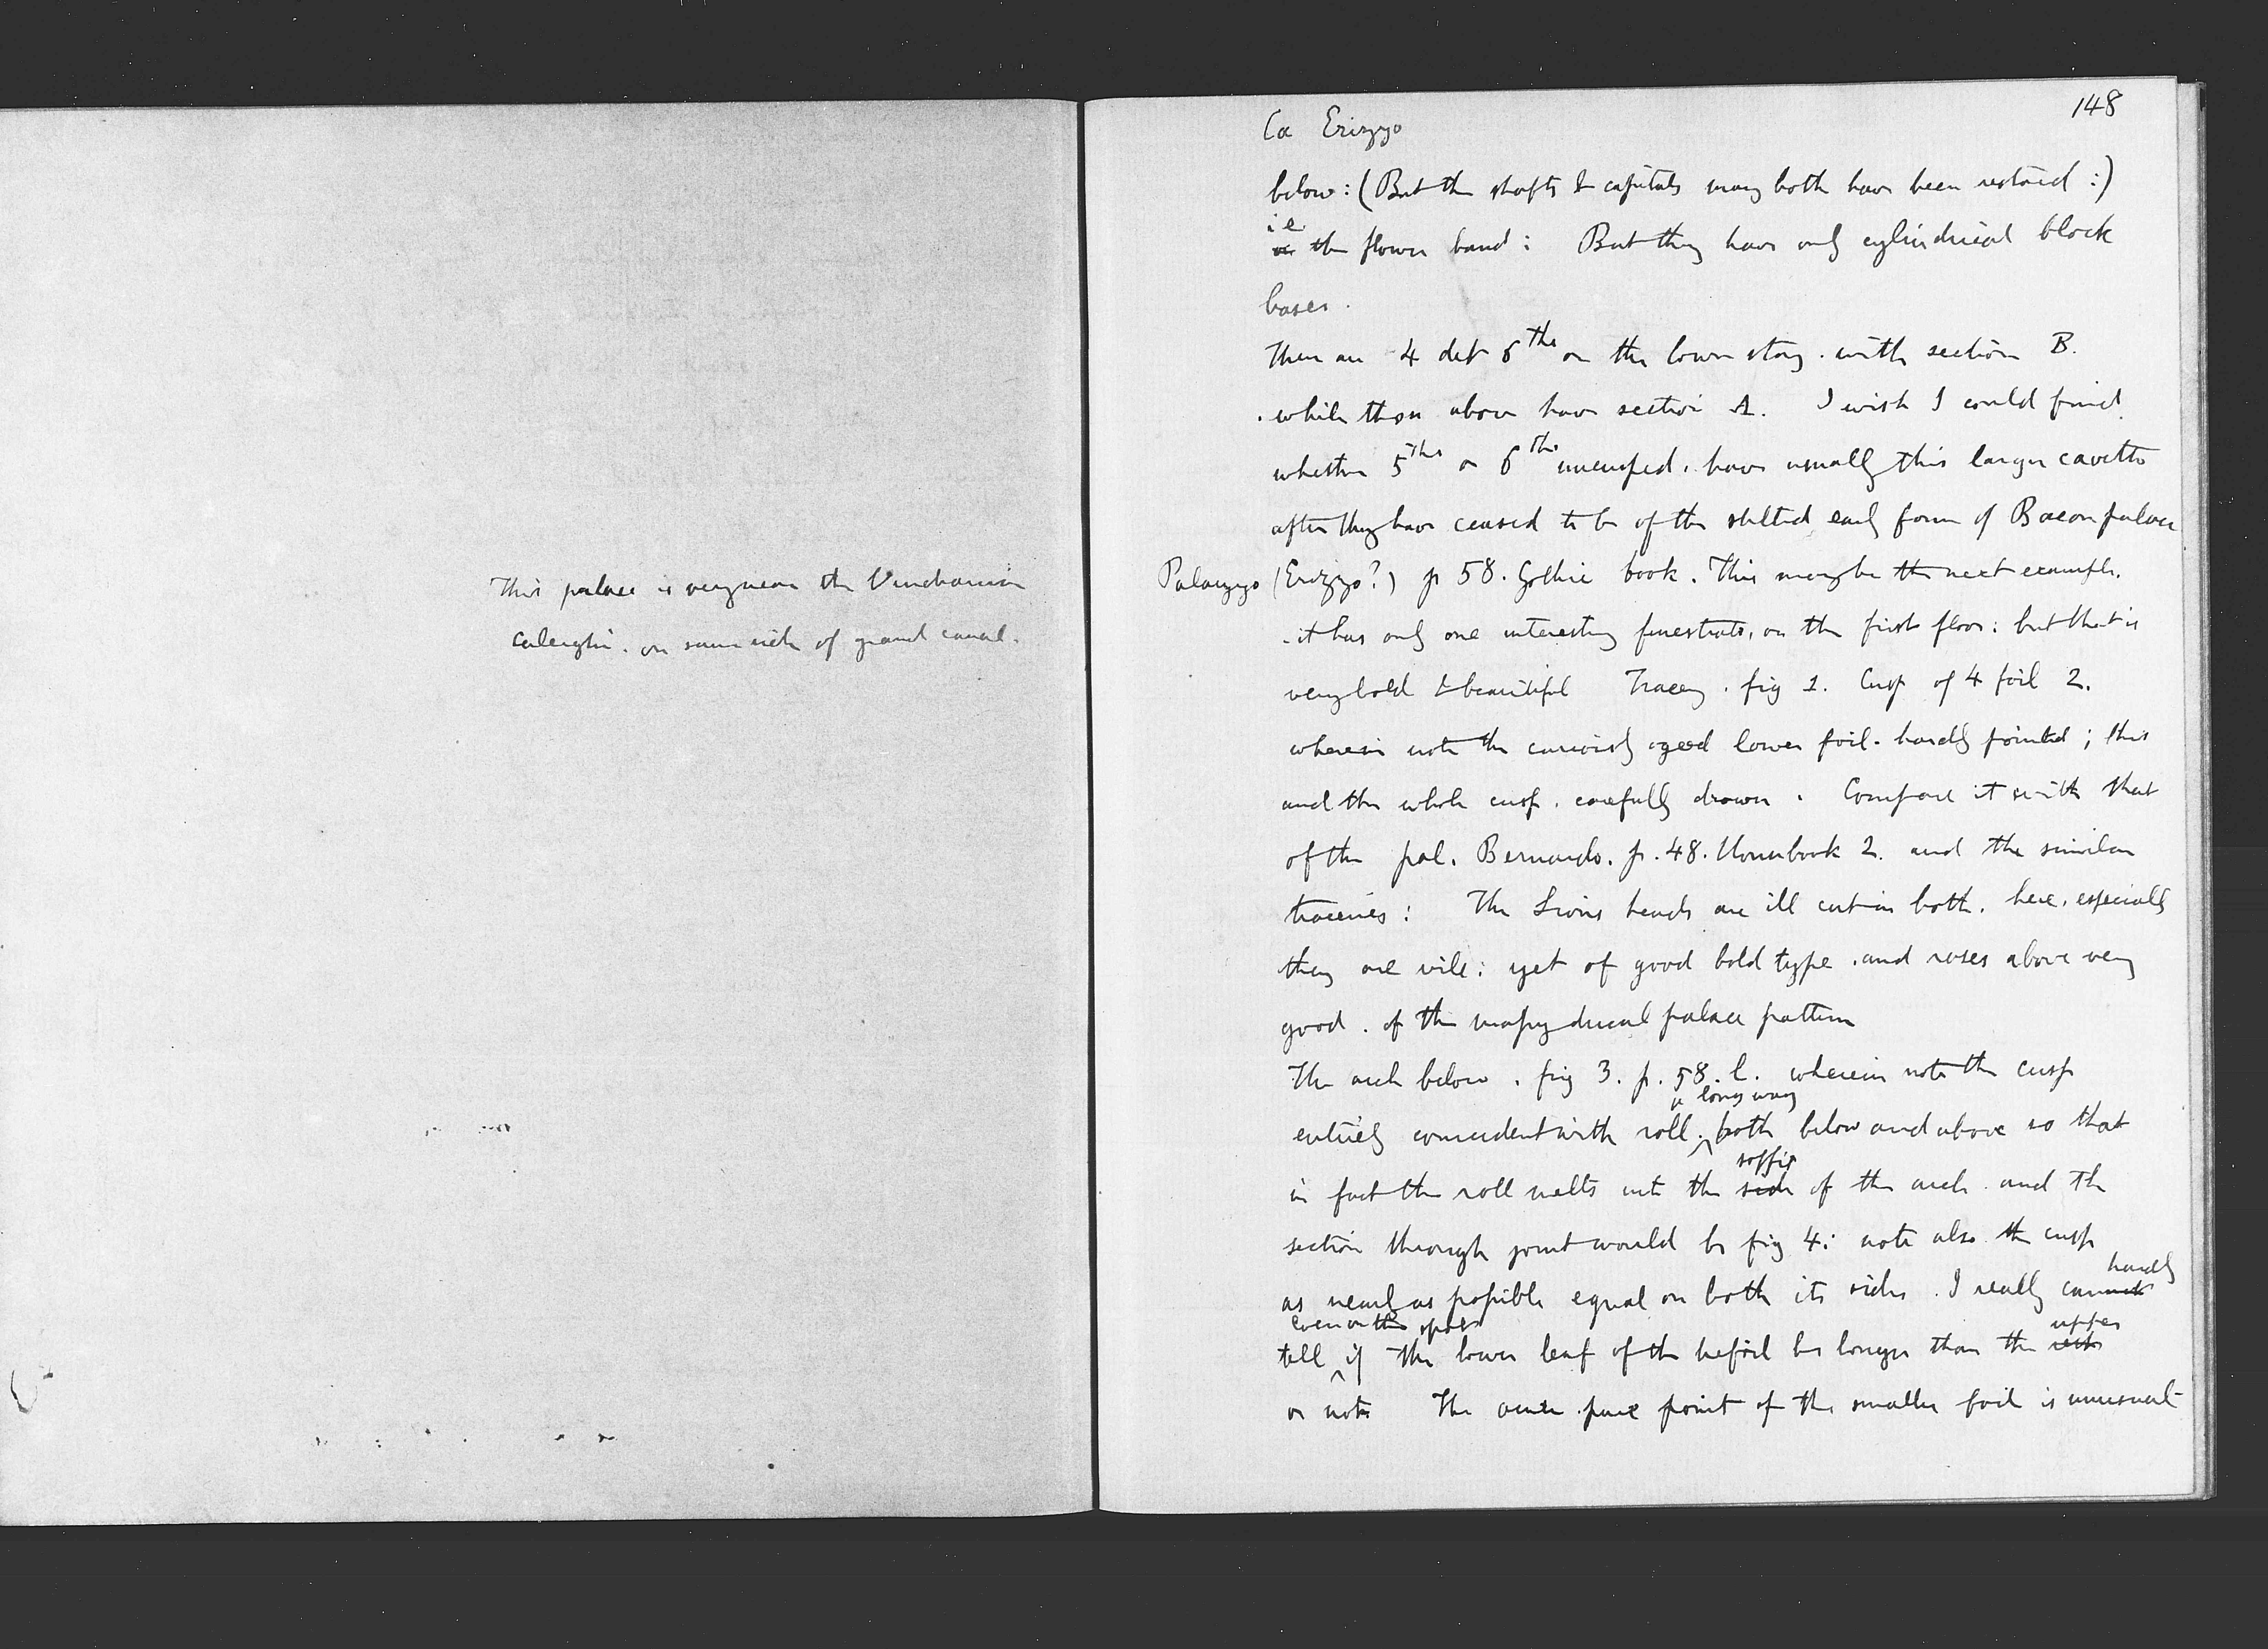 This palace is very near the Vendramin
Calerghi. on same side of grand canal.
148
Ca Erizzo
below: (But the shafts & capitals may both have been restored :)
i e
the flower band: But they have only cylindrical block
bases.
There are 4 det 6ths on the lower story. with section B.
while those above have section A. I wish I could find
whether 5ths or 6ths uncusped. have usually this larger cavetto
after they have ceased to be of the stilted early form of Bacon palace
Palazzo (Erizzo?) p 58. Gothic book. This may be the next example.
it has only one interesting fenestrate, on the first floor: but that is
very bold & beautiful Tracery. fig 1. Cusp of 4 foil 2.
wherein note the curiously ogeed lower foil. hardly pointed; this
and the whole cusp. carefully drawn. Compare it with that
of the pal. Bernardo. p. 48. Housebook 2. and the similar
traceries: The Lions heads are ill cut in both. here. especially
they are vile: yet of good bold type. and roses above very
good. of the ducal palace pattern
The arch below. fig 3. p. 58. l. wherein note the cusp
a long way
entirely coincident with roll. both below and above so that
soffit
in fact the roll melts into the side of the arch and the
section through joint would be fig 4: note also the cusp
hardly
as nearly as possible equal on both its sides. I really cannot
even on the spot
upper
tell if the lower leaf of the trefoil be longer than the
or not The pure point of the smaller foil is unusual-